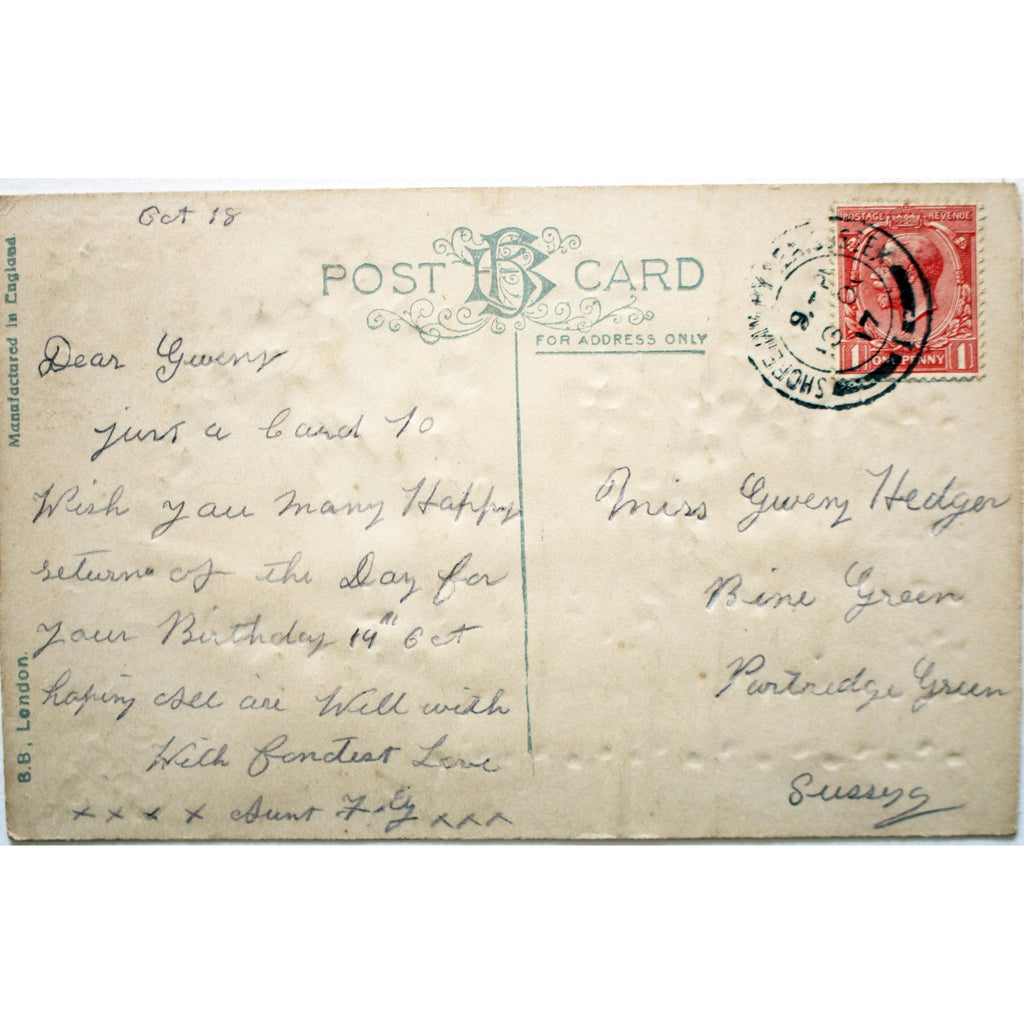 Oct 18
POST CARD
FOR ADDRESS ONLY
Manufactured in England
B.B, London.
POSTAGE REVENUE
1 ONE PENNY 1
SHOREHAM BY SEA SUSSEX
Dear Gweny
just a Card to
Wish you many Happy
return of the Day for
your Birthday 19th Oct
hoping all are Well with
With fondest Love
x x x x Aunt x x x
Miss Gweny Hedger
Bine Green
Partridge Green
Sussex